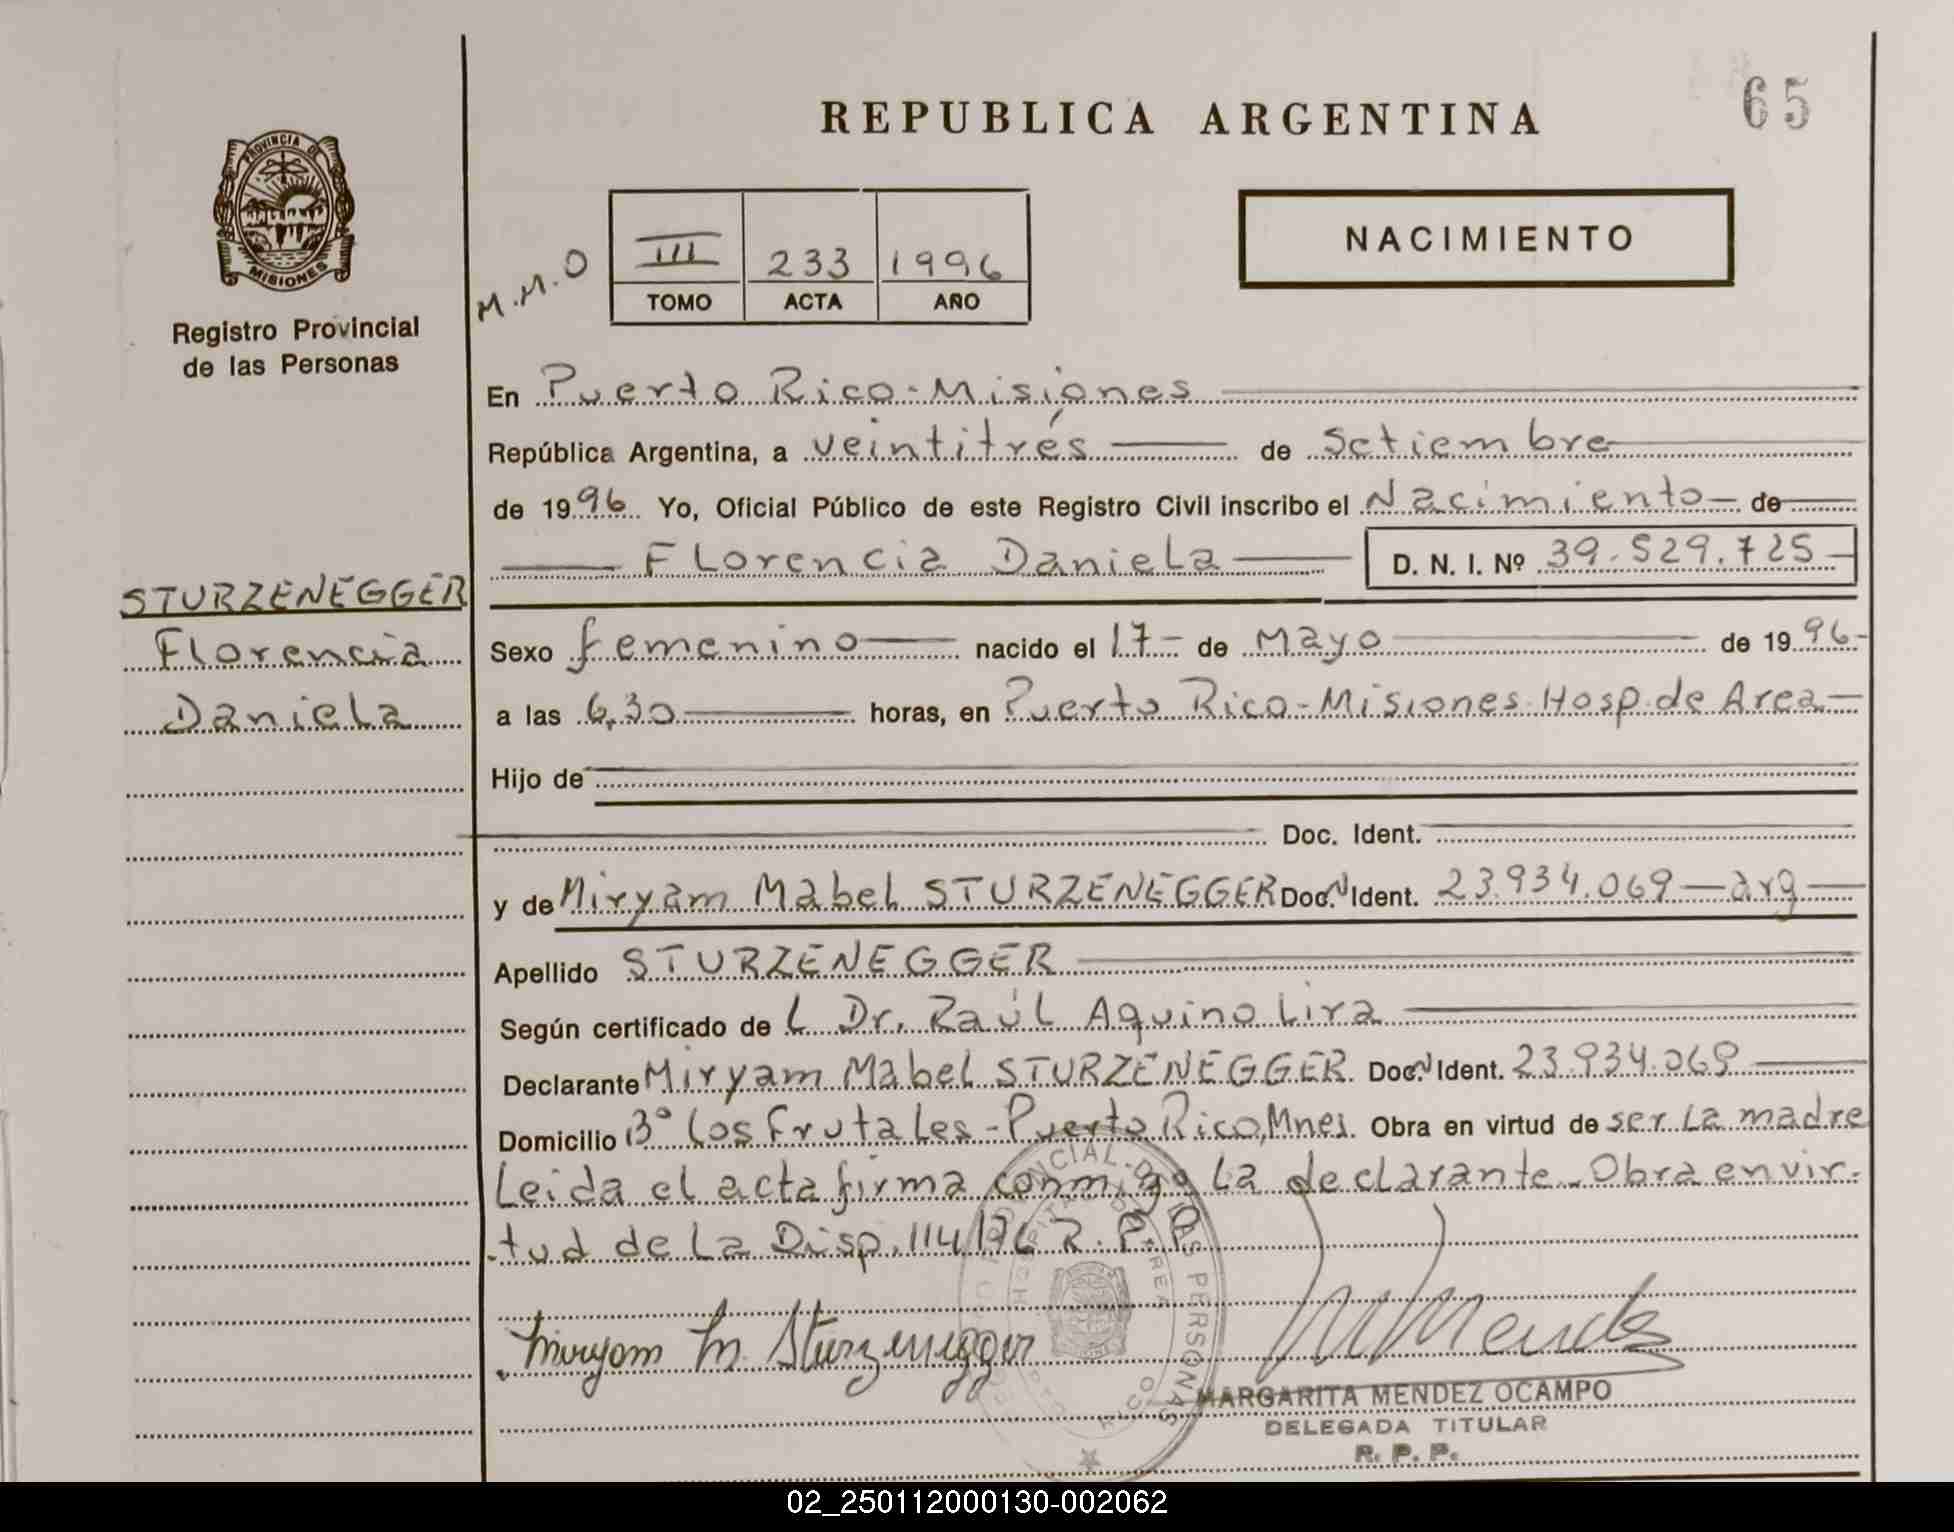 65
REPUBLICA ARGENTINA
PROVINCIA DE
MISIONES
Registro Provincial
de las Personas
M.M.O
III 233 1996
TOMO ACTA AÑO
NACIMIENTO
En Puerto Rico-Misiones
República Argentina, a veintitrés de Setiembre
de 1996. Yo, Oficial Público de este Registro Civil inscribo el Nacimiento de
Florencia Daniela D. N. I. Nº 39.529.725
STURZENEGGER
Florencia
Daniela
Sexo femenino nacido el 17 de Mayo de 1996
a las 6,30 horas, en Puerto Rico-Misiones-Hosp.de Area
Hijo de
Doc. Ident.
y de Miryam Mabel STURZENEGGER Doc. Ident. 23.934.069 — arg
Apellido STURZENEGGER
Según certificado de L Dr. Raúl Aquino Lira
Declarante Miryam Mabel STURZENEGGER Doc. Ident. 23.934.069
Domicilio Bº Los Frutales-Puerto Rico, Mnes. Obra en virtud de ser La madre
Leida el acta firma conmigo La declarante. Obra en vir-
tud de La Disp. 114/96 R.P.P.
Miryam M. Sturzenegger
M Mendez
MARGARITA MENDEZ OCAMPO
DELEGADA TITULAR
R. P. P.
02_250112000130-002062